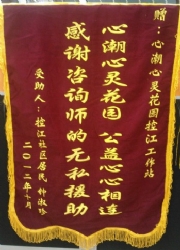 赠：心潮心灵花园控江工作站
心潮心灵花园 公益心心相连
感谢咨询师的无私援助
受助人：控江社区居民 钟淑珍
二〇一二年十月